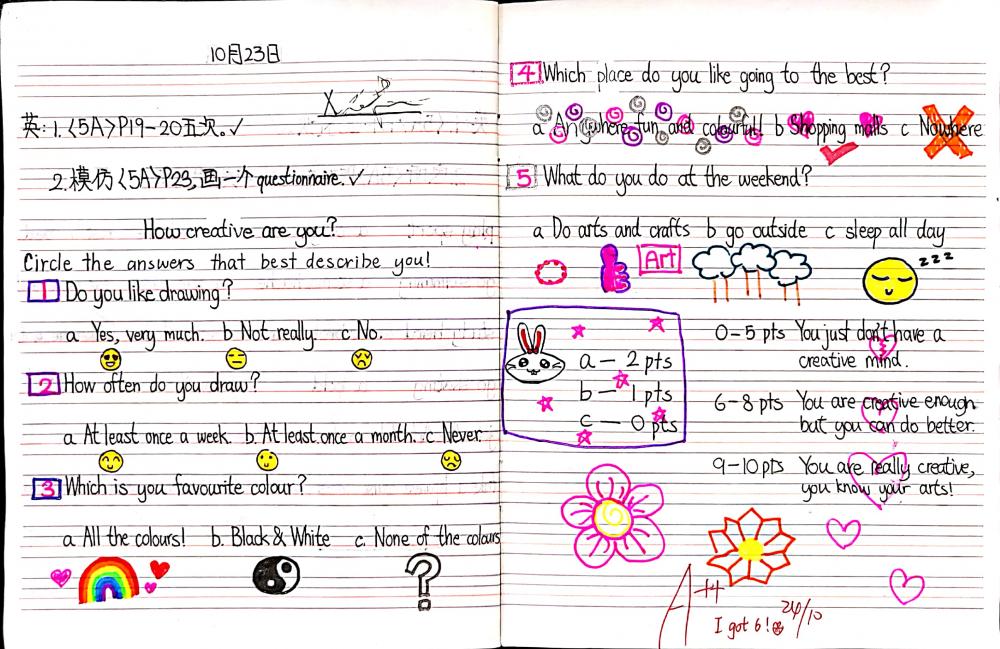 10月23日
英: 1.〈5A〉P19-20五次.✓
2.模仿〈5A〉P23,画一个questionnaire.✓
How creative are you?
Circle the answers that best describe you!
1 Do you like drawing?
a Yes, very much. b Not really. c No.
2 How often do you draw?
a. At least once a week. b. At least once a month. c Never.
3 Which is you favourite colour?
a. All the colours! b. Black & White c. None of the colours
?
4 Which place do you like going to the best?
a Anywhere fun and colourful! b Shopping malls c Nowhere
5 What do you do at the weekend?
a Do arts and crafts b go outside c sleep all day
Art
zzz
a — 2 pts
b — 1 pts
c — 0 pts
0-5 pts You just don't have a
creative mind.
6-8 pts You are creative enough
but you can do better.
9-10 pts You are really creative,
you know your arts!
A++
I got 6! 24/10